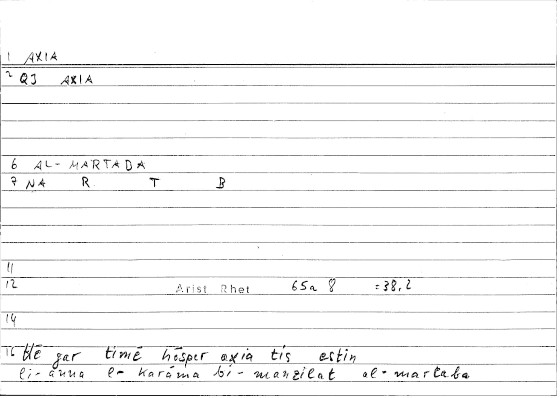 1 AXIA
2 QJ AXIA
6 AL-MARTADA
7 NA R T B
11
12 Arist Rhet 65a 8 =38,2
14
16 Hē gar timē hōsper axia tis estin
li-anna l-karāma bi-manzilat al-martaba